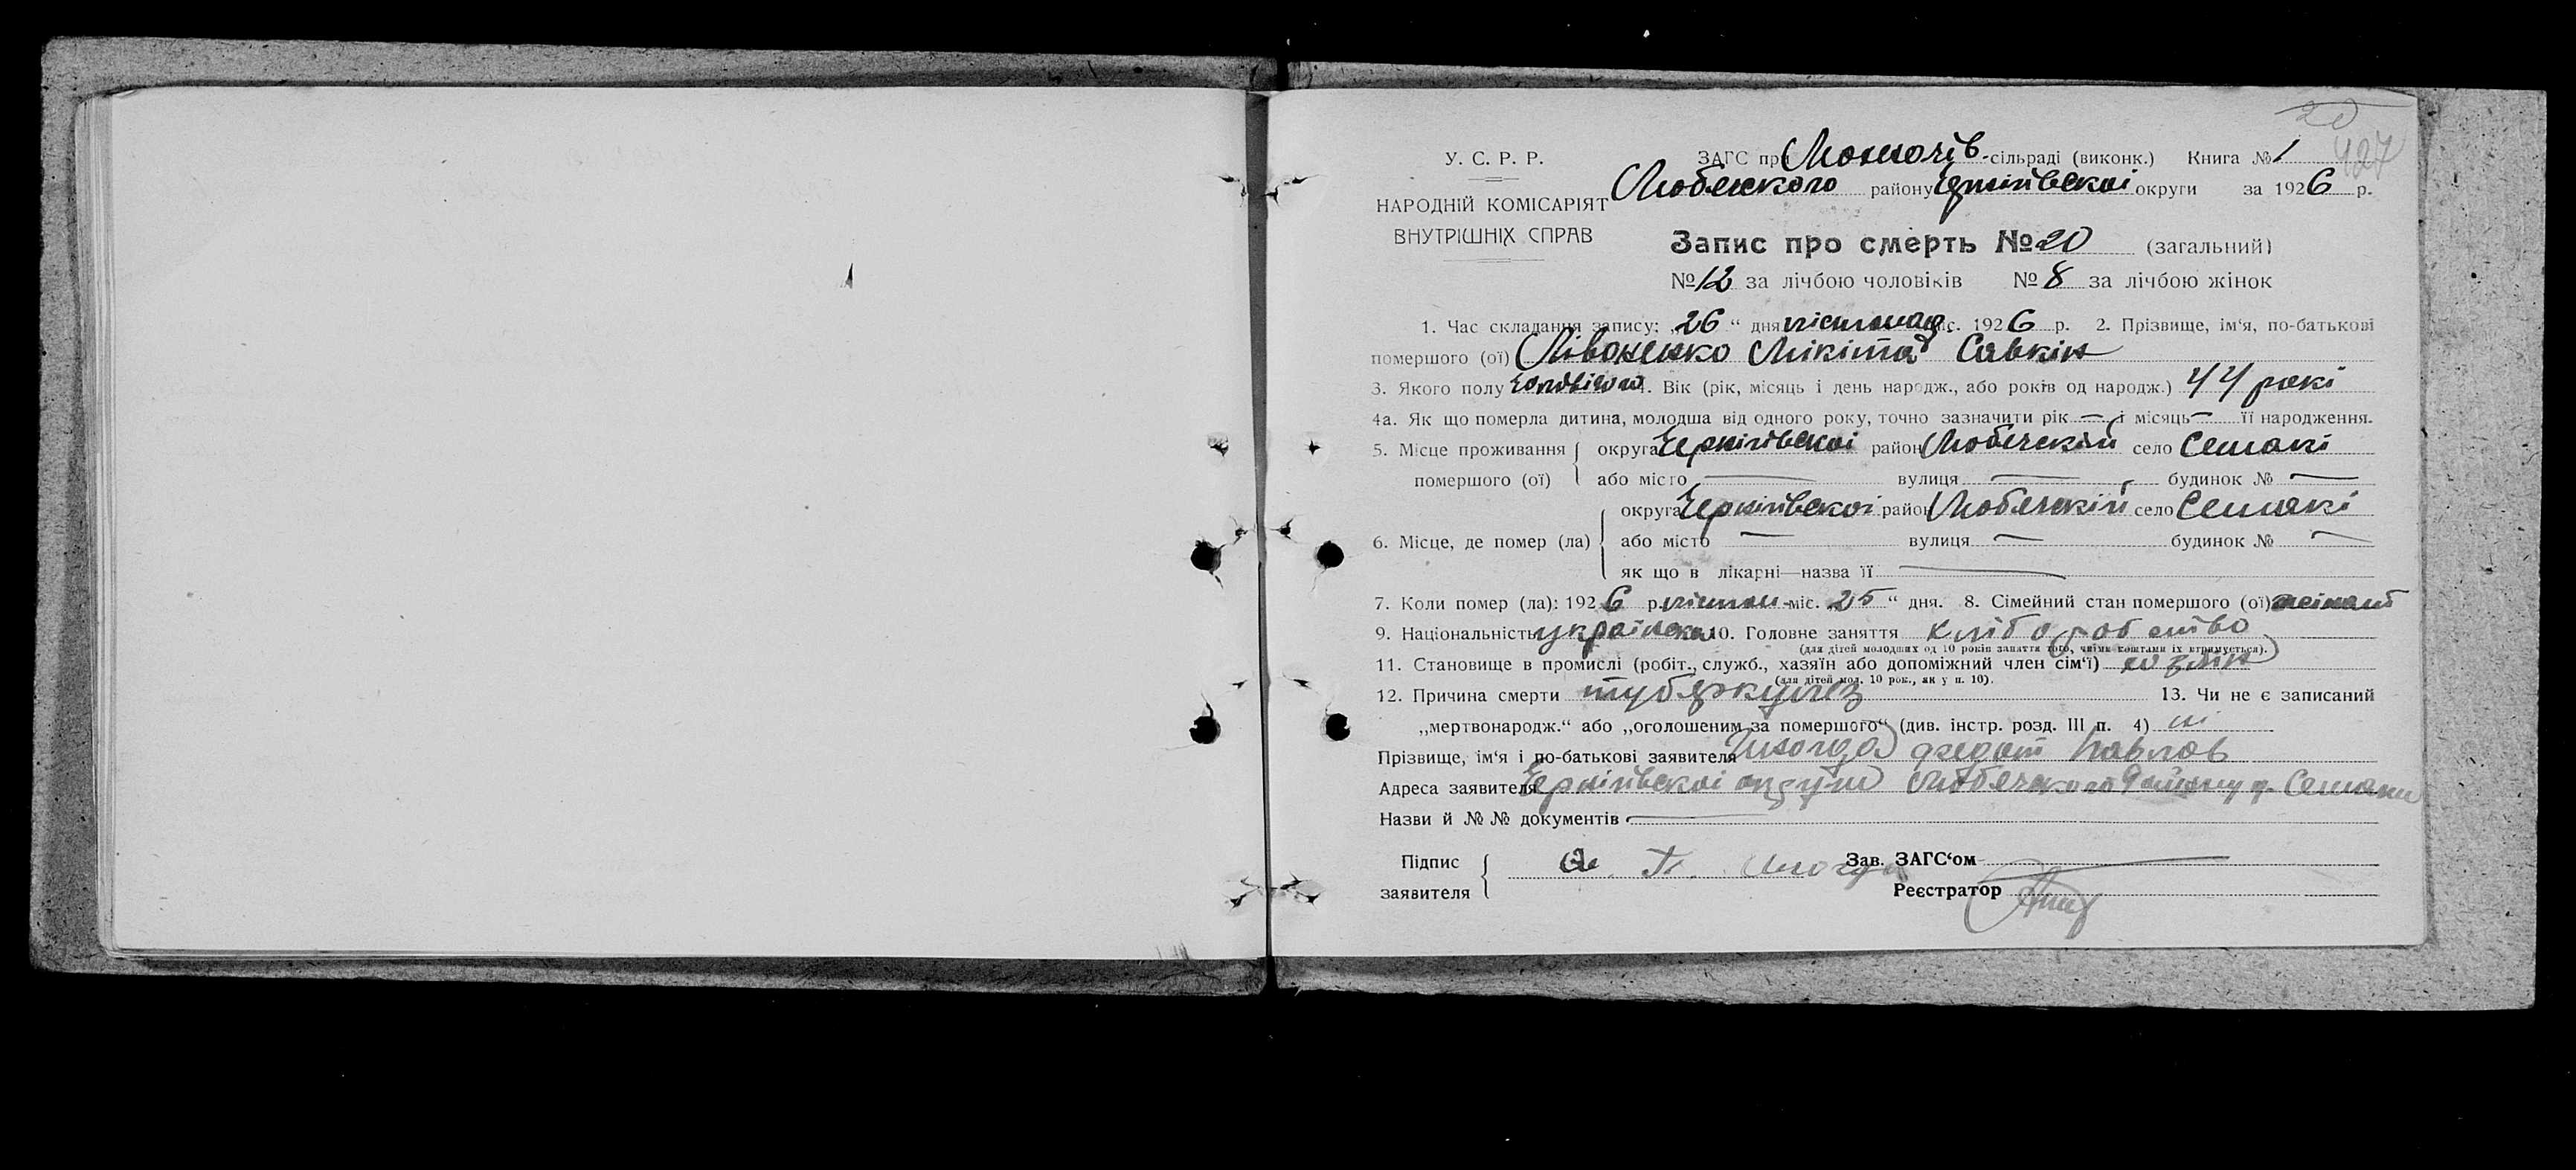 20
427
У. С. Р. Р.
ЗАГС при Мохначів. сільраді (виконк.) Книга № 1
Любецкого району Чернігівскоі округи за 1926 р.
НАРОДНІЙ КОМІСАРІЯТ
ВНУТРІШНІХ СПРАВ
Запис про смерть № 20 (загальний)
№ 12 за лічбою чоловіків № 8 за лічбою жінок
1. Час складання запису: „26“ дня листопад. міс. 1926 р. 2. Прізвище, ім‘я, по-батькові
помершого (ої) Лівоненко Мікіта Савкін
3. Якого полу 4. Вік (рік, місяць і день народж., або років од народж.) 44 рокі
4а. Як що померла дитина, молодша від одного року, точно зазначити рік — і місяць — її народження.
5. Місце проживання помершого (ої) округа Чернігівскоі район Любецкий село Семакі
або місто — вулиця — будинок № —
6. Місце, де помер (ла) округа Чернігівскоі район Любецкій село Семакі
або місто — вулиця — будинок № —
як що в лікарні—назва її —
7. Коли помер (ла): 1926 р. листоп. міс. „25“ дня. 8. Сімейний стан помершого (ої)
9. Національність 10. Головне заняття хліборобство
(для дітей молодших од 10 років заняття того, чиїми коштами їх втримується).
11. Становище в промислі (робіт., служб., хазяїн або допоміжний член сім‘ї) хозяін
(для дітей мол. 10 рок., як у п. 10).
12. Причина смерти туберкулез 13. Чи не є записаний
„мертвонародж.“ або „оголошеним за помершого“ (див. інстр. розд. III п. 4) ні
Прізвище, ім‘я і по-батькові заявителя Федот Павлов
Адреса заявителя Чернігівскоі округи Любецкого району с. Семаки
Назви й №№ документів —
Підпис заявителя
Зав. ЗАГС‘ом —
Реєстратор